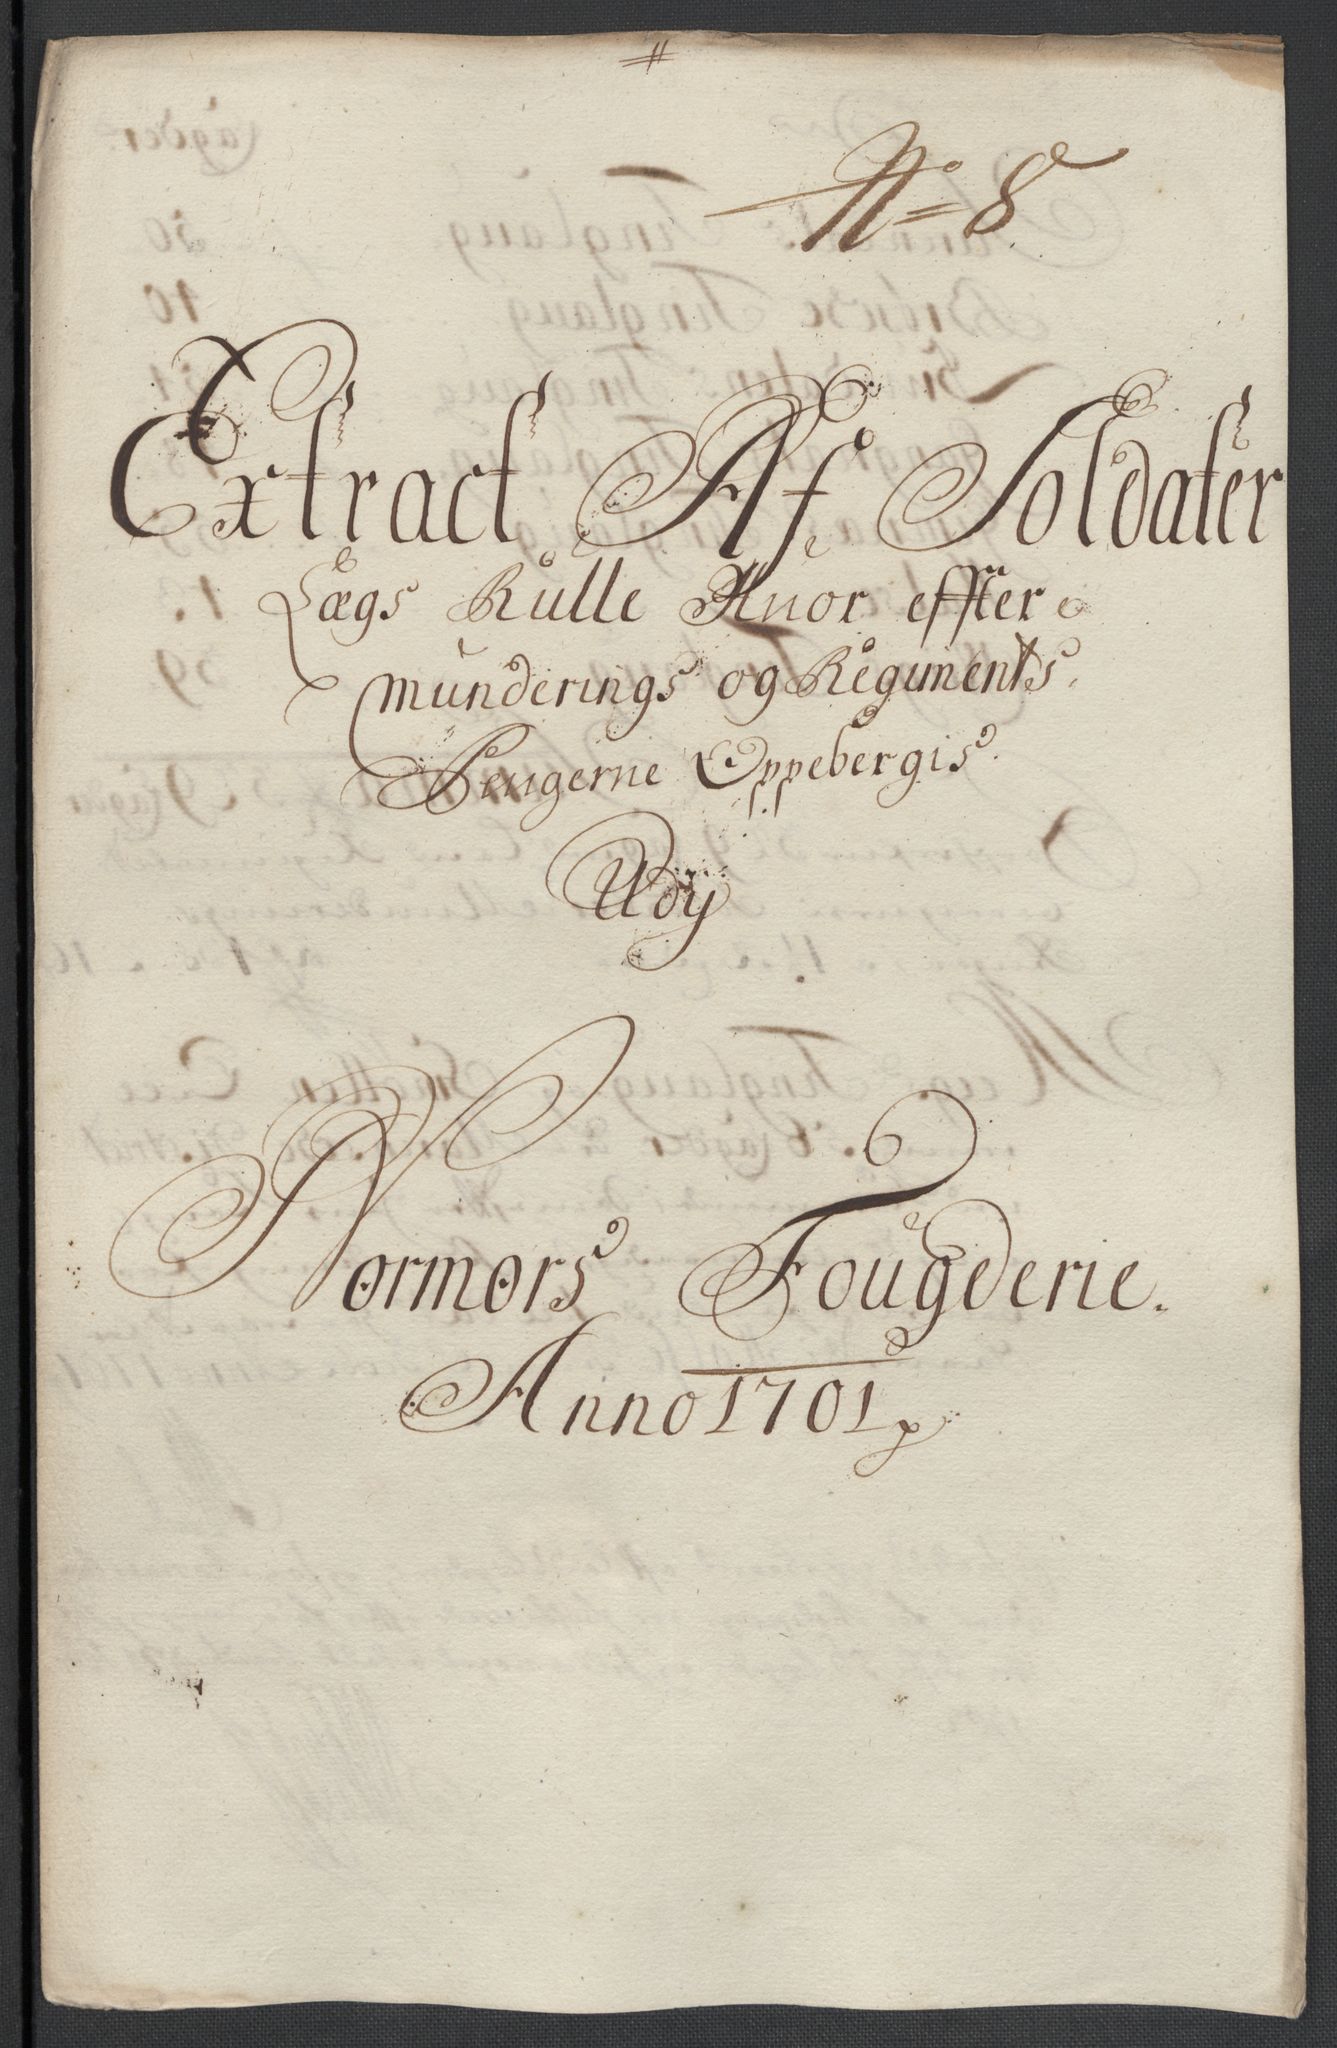 No 8
Extract Af Soldater
Lægs Rulle Huor effter
munderings og Regiments
Pengerne Oppebergis
Udy
Normørs Fougderie.
Anno 1701